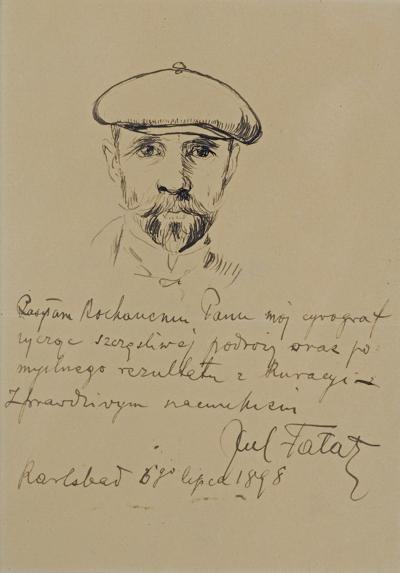 Posyłam Kochanemu Panu mój cyrograf
życząc szczęśliwej podroży oraz po-
myślnego rezultatu z kuracyi –
Z prawdziwym szacunkiem
Jul Fałat
Karlsbad 6go lipca 1898